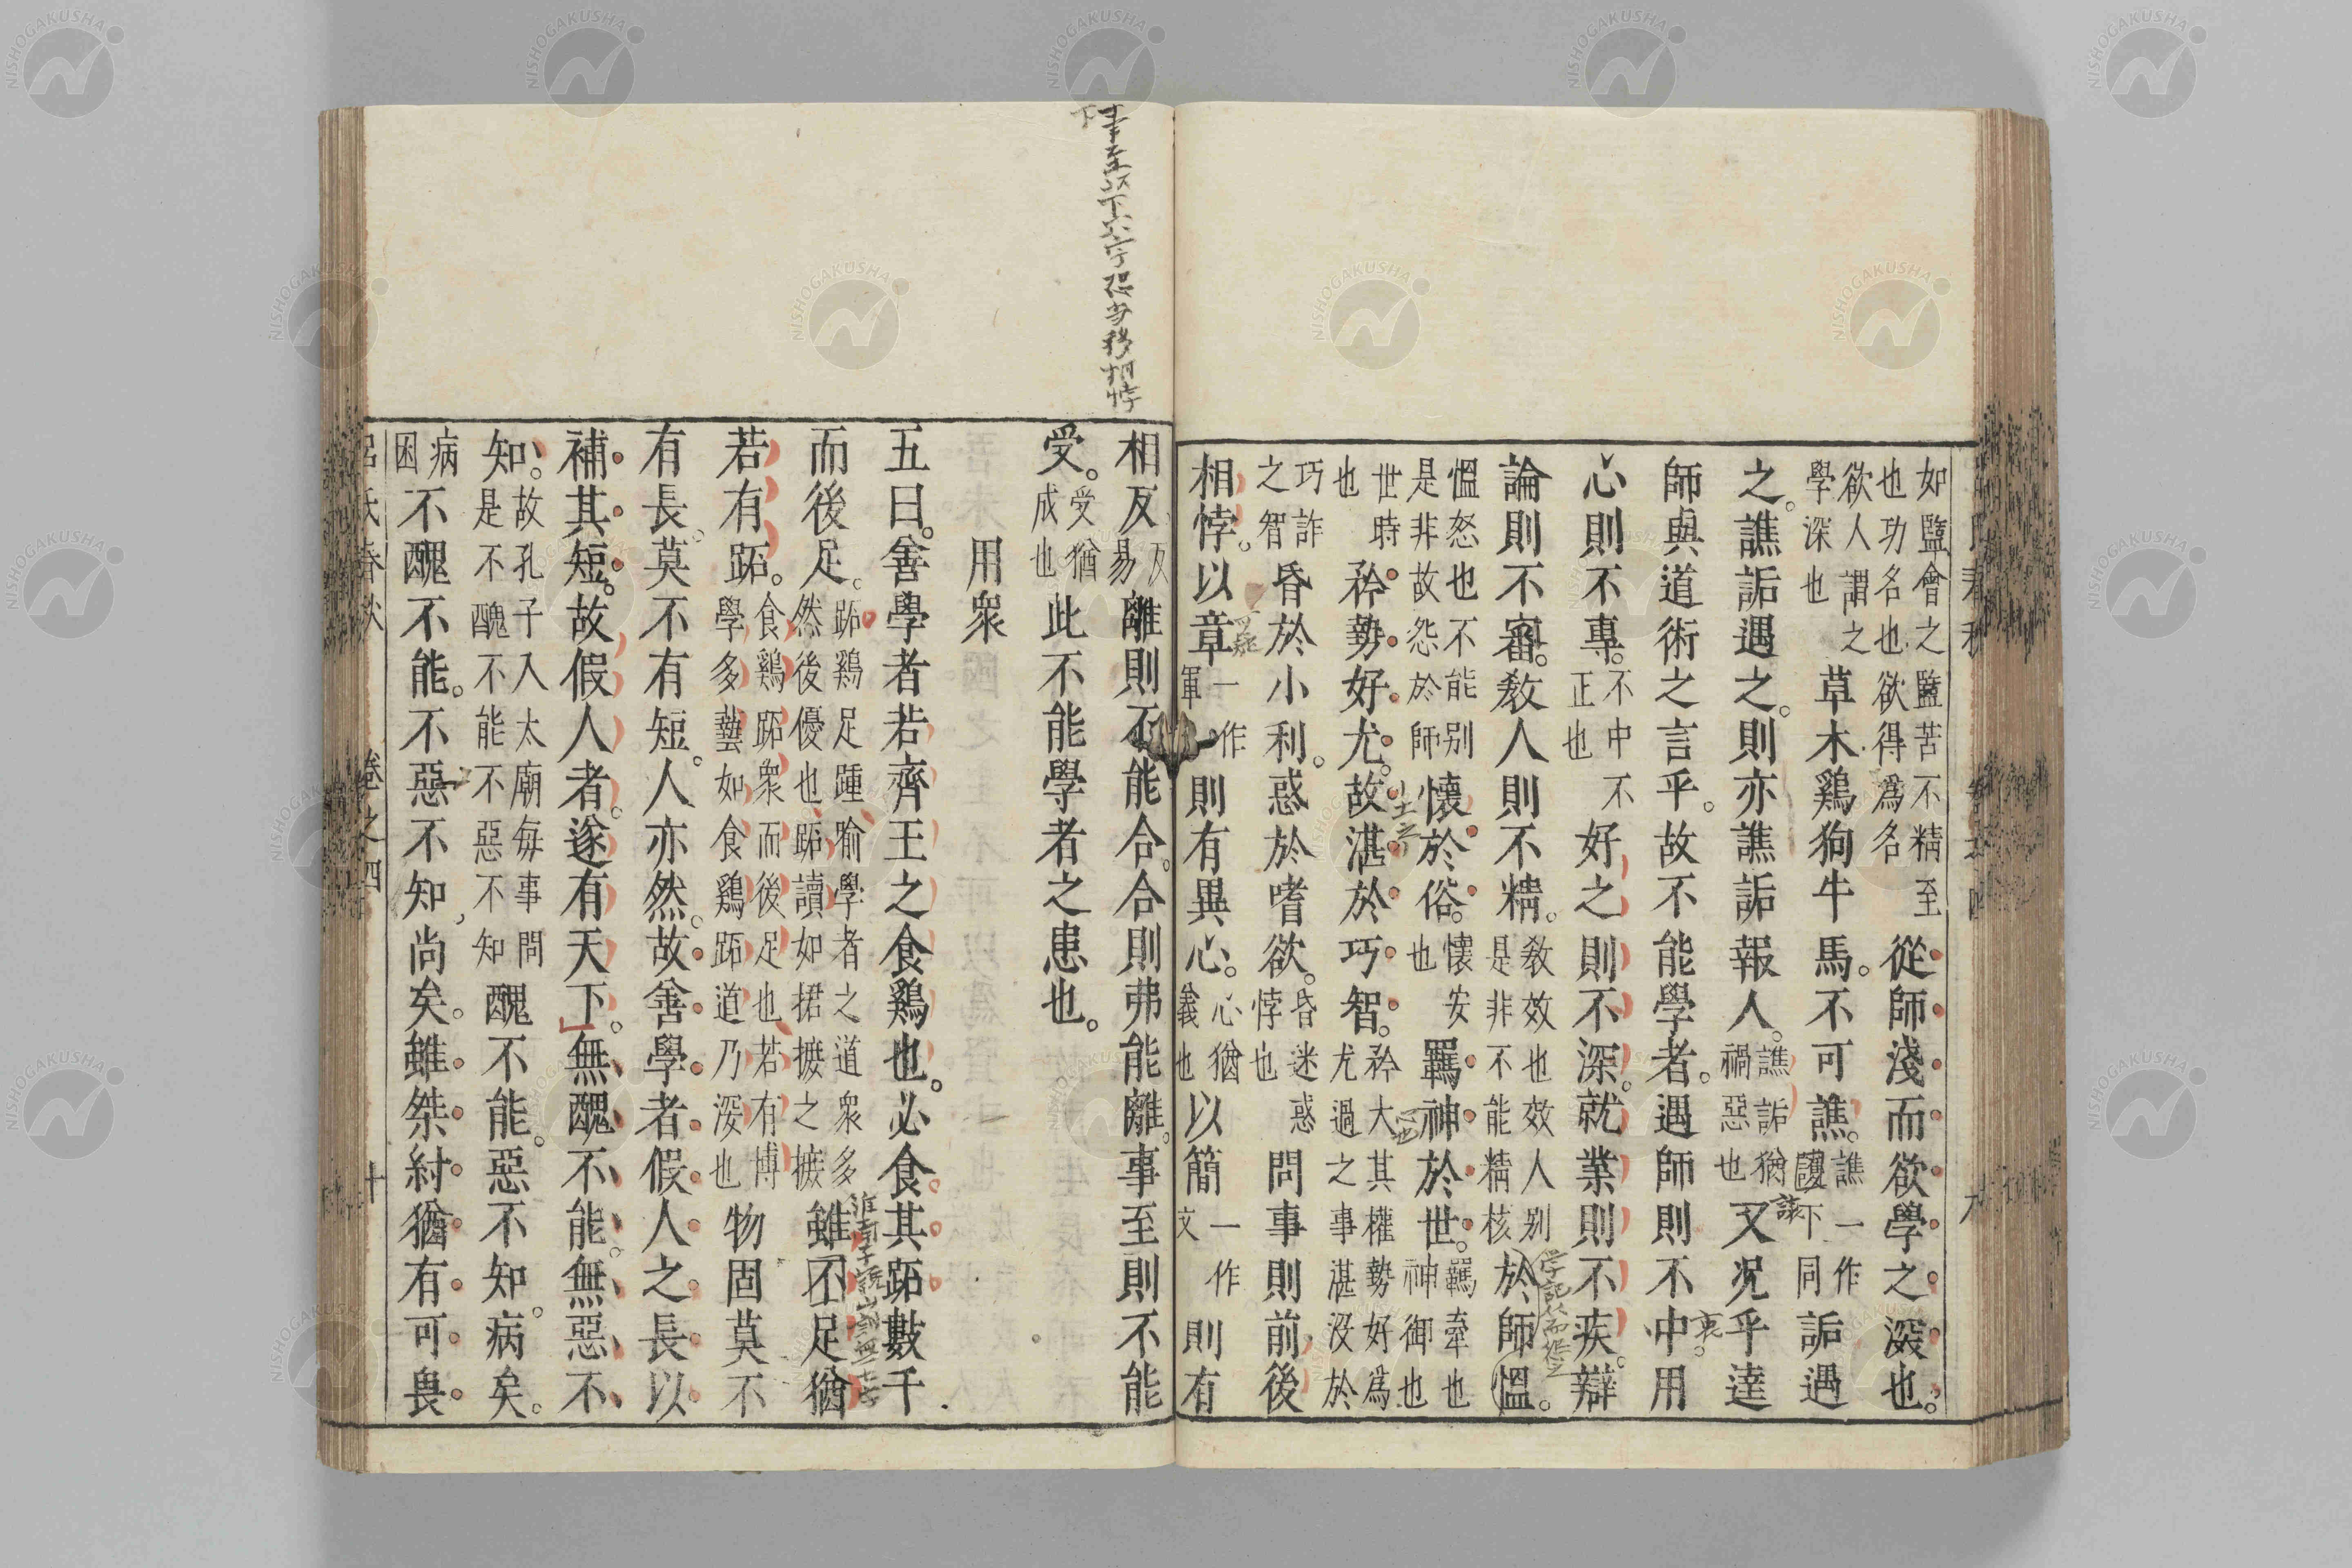 如盬會之盬苦不精至也功名也欲得爲名從師淺而欲學之深也。
欲人謂之學深也草木鷄狗牛馬。不可譙。譙一作下同詬遇
之。譙詬遇之。則亦譙詬報人。譙詬猶禍惡也又况乎達
師與道術之言乎。故不能學者。遇師則不中。用
心則不專。不中不正也好之則不深。就業則不疾。辯
論則不審。敎人則不精。敎效也效人别是非不能精核於師慍。
慍怒也不能别是非故怨於師懷於俗。懷安也羈神於世。羈牽也神御也
世時也矜勢好尤。故湛於巧智。矜大其權勢好爲尤過之事湛没於
巧詐之智昏於小利。惑於嗜欲。昏迷惑悖也問事則前後
相悖。以章一作軍則有異心。心猶義也以簡一作文則有
事至以下六字恐當移相悖下
相反反易離則不能合。合則弗能離。事至則不能
受。受猶成也此不能學者之患也。
用衆
五曰。善學者若齊王之食鷄也。必食其跖數千
而後足。跖鷄足踵喻學者之道衆多然後優也跖讀如捃摭之摭雖不足猶
若有跖。食鷄跖衆而後足也若有博學多藝如食鷄跖道乃深也物固莫不
有長。莫不有短。人亦然。故善學者假人之長以
補其短。故假人者。遂有天下。無醜不能。無惡不
知。故孔子入太廟每事問是不醜不能不惡不知醜不能。惡不知。病矣。
病困不醜不能。不惡不知。尚矣。雖桀紂猶有可畏
呂氏春秋 卷之四 十